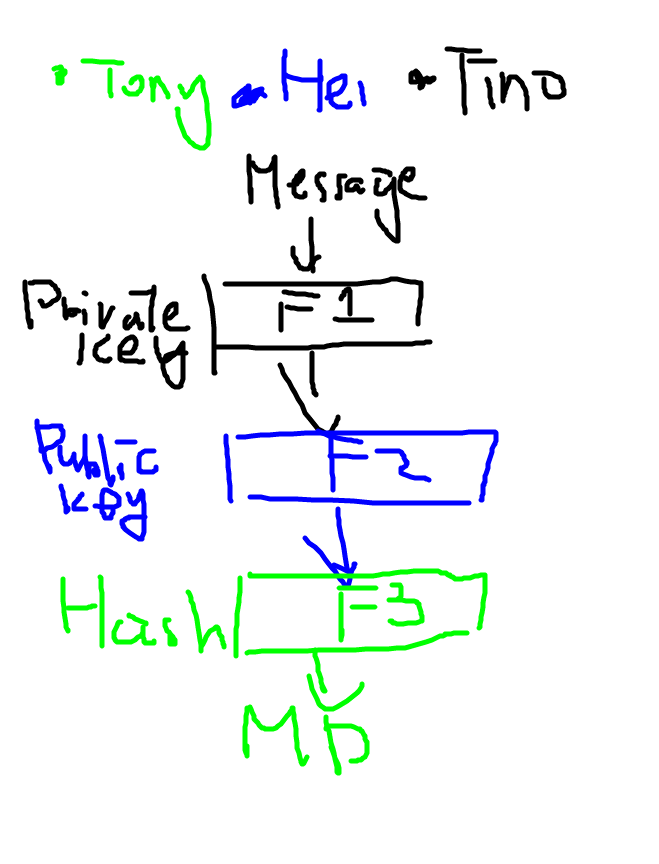 Tony Hei Tino
Message
Private
key
F1
Public
key
F2
Hash
F3
MD